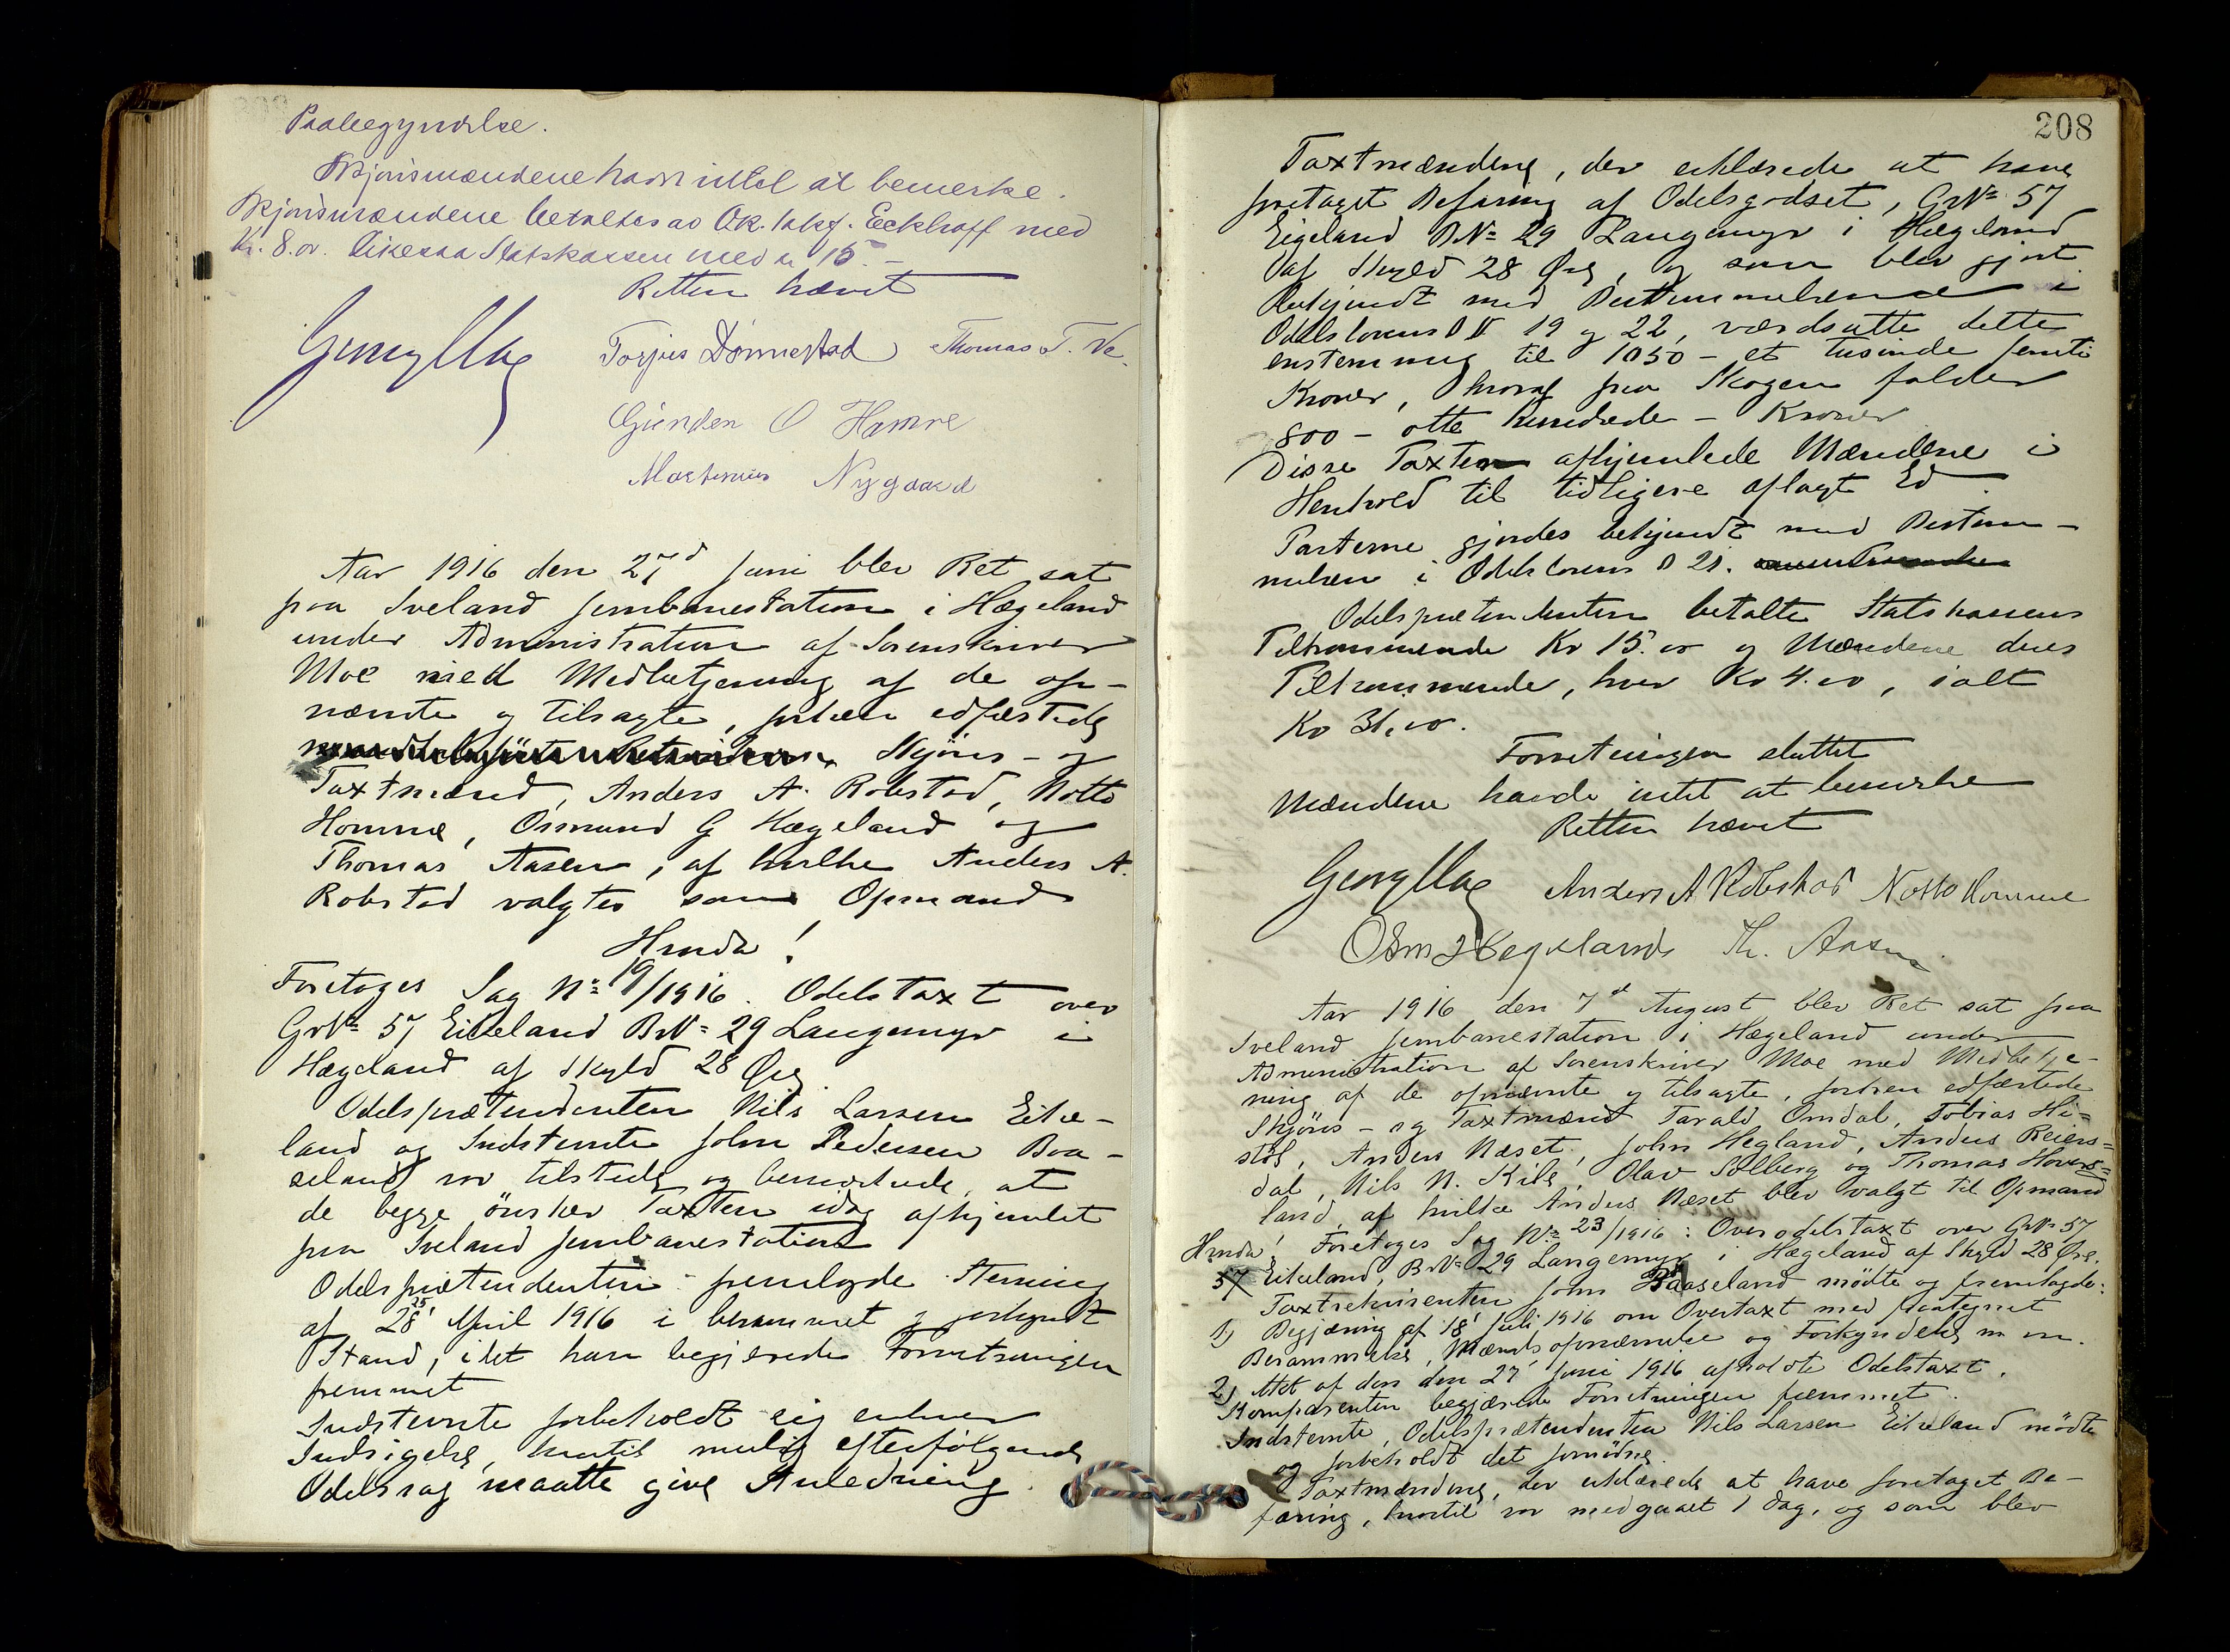 Paabegyndelse.
Skjönsmændene havde intet at bemerke.
Skjönsmændene betaltes av Ok. sakf. Eckhoff med
Kr. 8.00. Likesaa Statskassen med kr 15.–
Retten hævet
Georg Moe Torjus Dönnestad Thomas T. Ve.
Gunder O Hamre
Martinius Nygaard
Aar 1916 den 27d Juni blev Ret sat
paa Iveland Jernbanestation i Hægeland
under Administration af Sorenskriver
Moe med Medbetjening af de op-
nævnte og tilsagte, forhen edfæstede
Skjöns- og
Taxtmænd, Anders A. Robstad, Notto
Homme, Osmund G Hægeland og
Thomas Aasen, af hvilke Anders A.
Robstad valgtes som Opmand
Hvorda!
Foretoges Sag No 19/1916. Odelstaxt over
GrNo 57 Eikeland BrNo 29 Langemyr i
Hægeland af Skyld 28 Öre
Odelsprætendenten Nils Larsen Eike-
land og Indstevnte John Pedersen Baa-
seland var tilstede og bemerkede, at
de begge önsker Taxten idag afhjemlet
paa Iveland Jernbanestation
Odelsprætendenten fremlagde Stevning
af 28 25' April 1916 i berammet og forkyndt
Stand, idet han begjærede Forretningen
fremmet
Indstevnte forbeholdt sig enhver
Indsigelse, hvortil mulig efterfölgende
Odelssag maatte give Anledning.
208
Taxtmændene, der erklærede at have
foretaget Befaring af Odelsgodset, GrNo 57
Eigeland BNo 29 Langemyr i Hægeland
af Skyld 28 Öre, og som blev gjort
bekjendt med Bestemmelserne i
Odelslovens §§ 19 og 22, værdsatte dette
enstemmig til 1050 – et tusinde femti
Kroner, hvoraf paa Skogen falder
800 – otte hundrede – Kroner
Disse Taxter afhjemlede Mændene i
Henhold til tidligere aflagt Ed.
Parterne gjordes bekjendt med Bestem-
melsen i Odelslovens § 21.
Odelsprætendenten betalte Statskassens
Tilkommende Kr 15.00 og Mændene deres
Tilkommende, hver Kr 4.00, ialt
Kr 31.00.
Forretningen sluttet
Mændene havde intet at bemerke
Retten hævet
Georg Moe Anders A Robstad Notto Homme
Osm Hægeland Th. Aasen
Aar 1916 den 7d August blev Ret sat paa
Iveland Jernbanestation i Hægeland under
Administration af Sorenskriver Moe med Medbetje-
ning af de opnævnte og tilsagte, forhen edfæstede
Skjöns- og Taxtmænd Tarald Omdal, Tobias Hi=
stöl, Anders Næset, John Hegland, Anders Reiers=
dal, Nils N. Kile, Olav Solberg og Thomas Hovers=
land, af hvilke Anders Næset blev valgt til Opmand
Hvorda! Foretoges Sag No 23/1916: Overodelstaxt over GrNo 57
57 Eikeland, BrNo 29 Langemyr i Hægeland af Skyld 28 Öre.
Taxtrekvirenten John Baaseland mödte og fremlagde:
1) Begjæring af 18' Juli 1916 om Overtaxt med paategnet
Berammelse, Mændsopnævnelse og Forkyndelse m. m.
2) Akt af den den 27' Juni 1916 afholdte Odelstaxt.
Komparenten begjærede Forretningen fremmet.
Indstevnte, Odelsprætendenten Nils Larsen Eikeland mödte
og forbeholdt det fornödne.
Taxtmændene, der erklærede at have foretaget Be-
faring, hvortil var medgaaet 1 Dag, og som blev